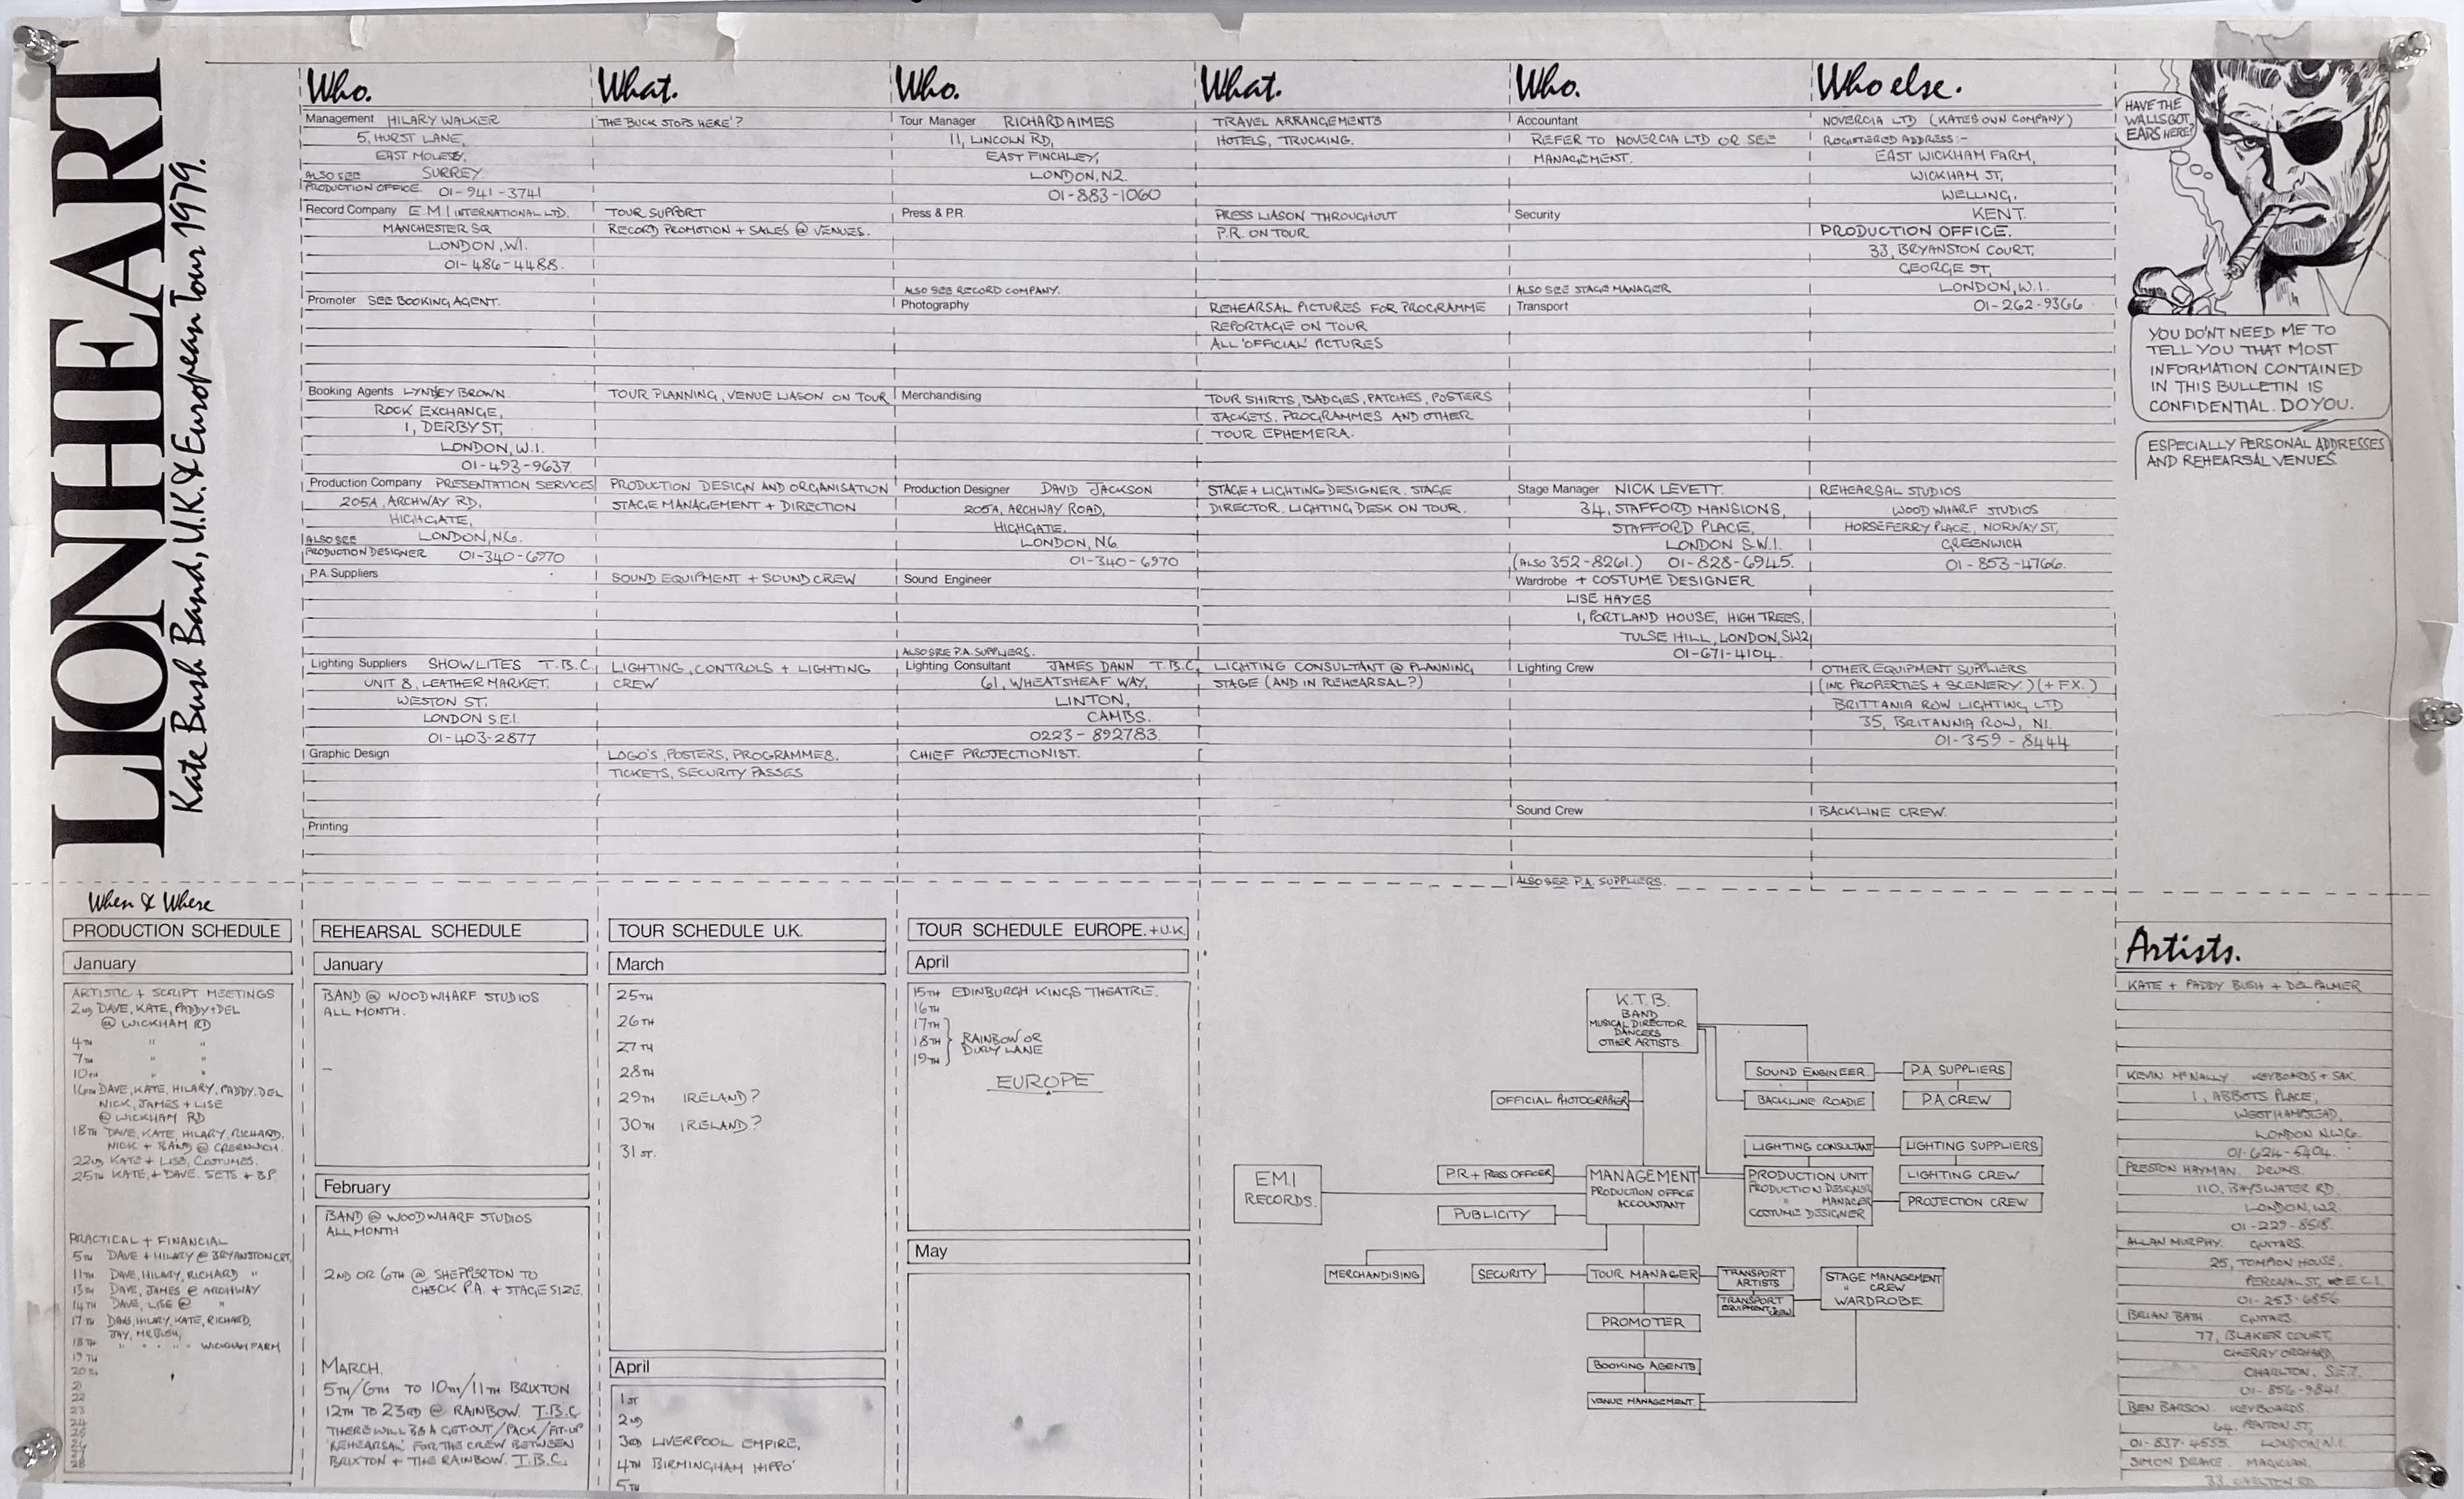 LIONHEART
Kate Bush Band, U.K. & European Tour 1979.
Who.
Management HILARY WALKER
5, HURST LANE,
EAST MOLESEY,
ALSO SEE SURREY.
PRODUCTION OFFICE. 01-941-3741
Record Company E.M.I INTERNATIONAL LTD.
MANCHESTER SQ
LONDON, W1.
01-486-4488.
Promoter SEE BOOKING AGENT.
Booking Agents LYNDEY BROWN.
ROCK EXCHANGE,
1, DERBY ST,
LONDON, W.1.
01-493-9637.
Production Company PRESENTATION SERVICES
205A, ARCHWAY RD,
HIGHGATE,
ALSO SEE LONDON, N6.
PRODUCTION DESIGNER 01-340-6970
P.A. Suppliers
Lighting Suppliers SHOWLITES T.B.C.
UNIT 8, LEATHER MARKET.
WESTON ST.
LONDON S.E.1.
01-403-2877
Graphic Design
Printing
What.
'THE BUCK STOPS HERE'?
TOUR SUPPORT
RECORD PROMOTION + SALES @ VENUES.
TOUR PLANNING, VENUE LIASON ON TOUR
PRODUCTION DESIGN AND ORGANISATION
STAGE MANAGEMENT + DIRECTION
SOUND EQUIPMENT + SOUND CREW
LIGHTING, CONTROLS + LIGHTING
CREW
LOGO'S, POSTERS, PROGRAMMES.
TICKETS, SECURITY PASSES
Who.
Tour Manager RICHARD AIMES
11, LINCOLN RD,
EAST FINCHLEY,
LONDON, N2.
01-883-1060
Press & P.R.
ALSO SEE RECORD COMPANY.
Photography
Merchandising
Production Designer DAVID JACKSON
205A, ARCHWAY ROAD,
HIGHGATE,
LONDON, N6
01-340-6970
Sound Engineer
ALSO SEE P.A. SUPPLIERS.
Lighting Consultant JAMES DANN T.B.C.
61, WHEATSHEAF WAY,
LINTON,
CAMBS.
0223-892783.
CHIEF PROJECTIONIST.
What.
TRAVEL ARRANGEMENTS
HOTELS, TRUCKING.
PRESS LIASON THROUGHOUT
P.R. ON TOUR
REHEARSAL PICTURES FOR PROGRAMME
REPORTAGE ON TOUR
ALL 'OFFICIAL' PICTURES
TOUR SHIRTS, BADGES, PATCHES, POSTERS
JACKETS. PROGRAMMES AND OTHER
TOUR EPHEMERA.
STAGE + LIGHTING DESIGNER. STAGE
DIRECTOR. LIGHTING DESK ON TOUR.
LIGHTING CONSULTANT @ PLANNING
STAGE (AND IN REHEARSAL?)
Who.
Accountant
REFER TO NOVERCIA LTD OR SEE
MANAGEMENT.
Security
ALSO SEE STAGE MANAGER
Transport
Stage Manager NICK LEVETT.
34, STAFFORD MANSIONS,
STAFFORD PLACE,
LONDON S.W.1.
(ALSO 352-8261.) 01-828-6945.
Wardrobe + COSTUME DESIGNER
LISE HAYES
1, PORTLAND HOUSE, HIGH TREES,
TULSE HILL, LONDON, SW2
01-671-4104.
Lighting Crew
Sound Crew
ALSO SEE P.A. SUPPLIERS.
Who else.
NOVERCIA LTD (KATES OWN COMPANY)
REGISTERED ADDRESS:-
EAST WICKHAM FARM,
WICKHAM ST,
WELLING,
KENT.
PRODUCTION OFFICE.
33, BRYANSTON COURT,
GEORGE ST,
LONDON, W.1.
01-262-9366
REHEARSAL STUDIOS
WOOD WHARF STUDIOS
HORSEFERRY PLACE, NORWAY ST,
GREENWICH
01-853-4766.
OTHER EQUIPMENT SUPPLIERS
(INC PROPERTIES + SCENERY.) (+ FX.)
BRITTANIA ROW LIGHTING LTD
35, BRITANNIA ROW, N1.
01-359-8444
BACKLINE CREW.
HAVE THE
WALLS GOT
EARS HERE?
YOU DON'T NEED ME TO
TELL YOU THAT MOST
INFORMATION CONTAINED
IN THIS BULLETIN IS
CONFIDENTIAL. DO YOU.
ESPECIALLY PERSONAL ADDRESSES
AND REHEARSAL VENUES.
When & Where
PRODUCTION SCHEDULE
January
ARTISTIC + SCRIPT MEETINGS
2ND DAVE, KATE, PADDY + DEL
@ WICKHAM RD
4TH " "
7TH " "
10TH " "
16TH DAVE, KATE, HILARY, PADDY. DEL
NICK, JAMES + LISE
@ WICKHAM RD
18TH DAVE, KATE, HILARY, RICHARD,
NICK + BAND @ GREENWICH.
22ND KATE + LISE, COSTUMES.
25TH KATE, + DAVE. SETS + B.P.
PRACTICAL + FINANCIAL
5TH DAVE + HILARY @ BRYANSTON CRT,
11TH DAVE, HILARY, RICHARD "
13TH DAVE, JAMES @ ARCHWAY
14TH DAVE, LISE @ "
17TH DAVE, HILARY, KATE, RICHARD,
JAY, MR BUSH,
18TH " " " " WICKHAM FARM
19TH
20TH
21
22
23
24
25
26
27
28
REHEARSAL SCHEDULE
January
BAND @ WOODWHARF STUDIOS
ALL MONTH.
February
BAND @ WOODWHARF STUDIOS
ALL MONTH
2ND OR 6TH @ SHEPPERTON TO
CHECK P.A. + STAGE SIZE.
MARCH.
5TH/6TH TO 10TH/11TH BRIXTON
12TH TO 23RD @ RAINBOW. T.B.C
THERE WILL BE A GET-OUT/PACK/FIT-UP
'REHEARSAL' FOR THE CREW BETWEEN
BRIXTON + THE RAINBOW. T.B.C.
TOUR SCHEDULE U.K.
March
25TH
26TH
27TH
28TH
29TH IRELAND?
30TH IRELAND?
31ST.
April
1ST
2ND
3RD LIVERPOOL EMPIRE,
4TH BIRMINGHAM HIPPO'
5TH
TOUR SCHEDULE EUROPE. + U.K.
April
15TH EDINBURGH KINGS THEATRE.
16TH
17TH
18TH RAINBOW OR
19TH DURY LANE
EUROPE
May
K.T.B.
BAND
MUSICAL DIRECTOR
DANCERS
OTHER ARTISTS
SOUND ENGINEER
P.A. SUPPLIERS
OFFICIAL PHOTOGRAPHER
BACKLINE ROADIE
P.A CREW
LIGHTING CONSULTANT
LIGHTING SUPPLIERS
E.M.I
RECORDS.
P.R + PRESS OFFICER
PUBLICITY
MANAGEMENT
PRODUCTION OFFICE
ACCOUNTANT
PRODUCTION UNIT
PRODUCTION DESIGNER
" MANAGER
COSTUME DESIGNER
LIGHTING CREW
PROJECTION CREW
MERCHANDISING
SECURITY
TOUR MANAGER
TRANSPORT
ARTISTS
TRANSPORT
EQUIPMENT + CREW
STAGE MANAGEMENT
" CREW
WARDROBE
PROMOTER
BOOKING AGENTS
VENUE MANAGEMENT.
Artists.
KATE + PADDY BUSH + DEL PALMER
KEVIN McNALLY KEYBOARDS + SAX
1, ABBOTS PLACE,
WEST HAMPSTEAD,
LONDON N.W.6.
01-624-5404.
PRESTON HAYMAN. DRUMS.
110, BAYSWATER RD.
LONDON, W2.
01-229-8518.
ALLAN MURPHY. GUITARS.
25, TOMPION HOUSE,
PERCIVAL ST, E.C.1.
01-253-6856
BRIAN BATH. GUITARS.
77, BLAKER COURT,
CHERRY ORCHARD,
CHARLTON. S.E.7.
01-856-9841.
BEN BARSON. KEYBOARDS.
64, PENTON ST,
01-837-4555. LONDON N.1.
SIMON DRAKE. MAGICIAN.
33, CARLTON RD